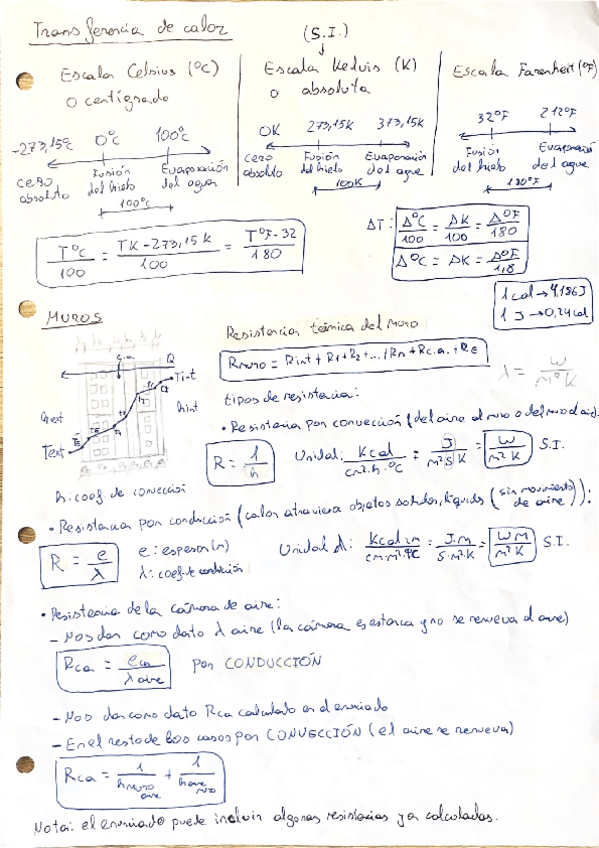 Transferencia de calor
(S.I.)
Escala Celsius (ºC)
o centígrado
Escala Kelvin (K)
o absoluta
Escala Farenheit (ºF)
-273,15ºC 0ºC 100ºC
cero absoluto Fusión del hielo Evaporación del agua
100ºC
0K 273,15K 373,15K
cero absoluto Fusión del hielo Evaporación del agua
100K
32ºF 212ºF
Fusión del hielo Evaporación del agua
180ºF
TºC/100 = TK-273,15K/100 = TºF-32/180
ΔT: ΔºC/100 = ΔK/100 = ΔºF/180
ΔºC = ΔK = ΔºF/1,8
1 cal → 4,186J
1 J → 0,24cal
MUROS
Resistencia térmica del muro
Rmuro = Rint + R1 + R2 + ... / Rn + Rc.a. + Re
λ = W/mºK
c.a. Q
Tint
hext hint
Text
tipos de resistencia:
• Resistencia por convección (del aire al muro o del muro al aire).
R = 1/h
Unidad: Kcal/cm².h.ºC = J/m²SK = W/m²K S.I.
h: coef. de convección
• Resistencia por conducción (calor atraviesa objetos solidos, líquidos (sin movimiento de aire)):
R = e/λ
e: espesor (m)
λ: coef. de conducción
Unidad λ: Kcal.m/cm.m².ºC = J.m/S.m².K = W m/m²K S.I.
• Resistencia de la cámara de aire:
- Nos dan como dato λ aire (la cámara es estanca y no se renueva el aire)
Rca = eca/λ aire por CONDUCCIÓN
- Nos dan como dato Rca calculado en el enunciado
- En el resto de los casos por CONVECCIÓN (el aire se renueva)
Rca = 1/h muro aire + 1/h aire muro
Nota: el enunciado puede incluir algunas resistencias ya calculadas.